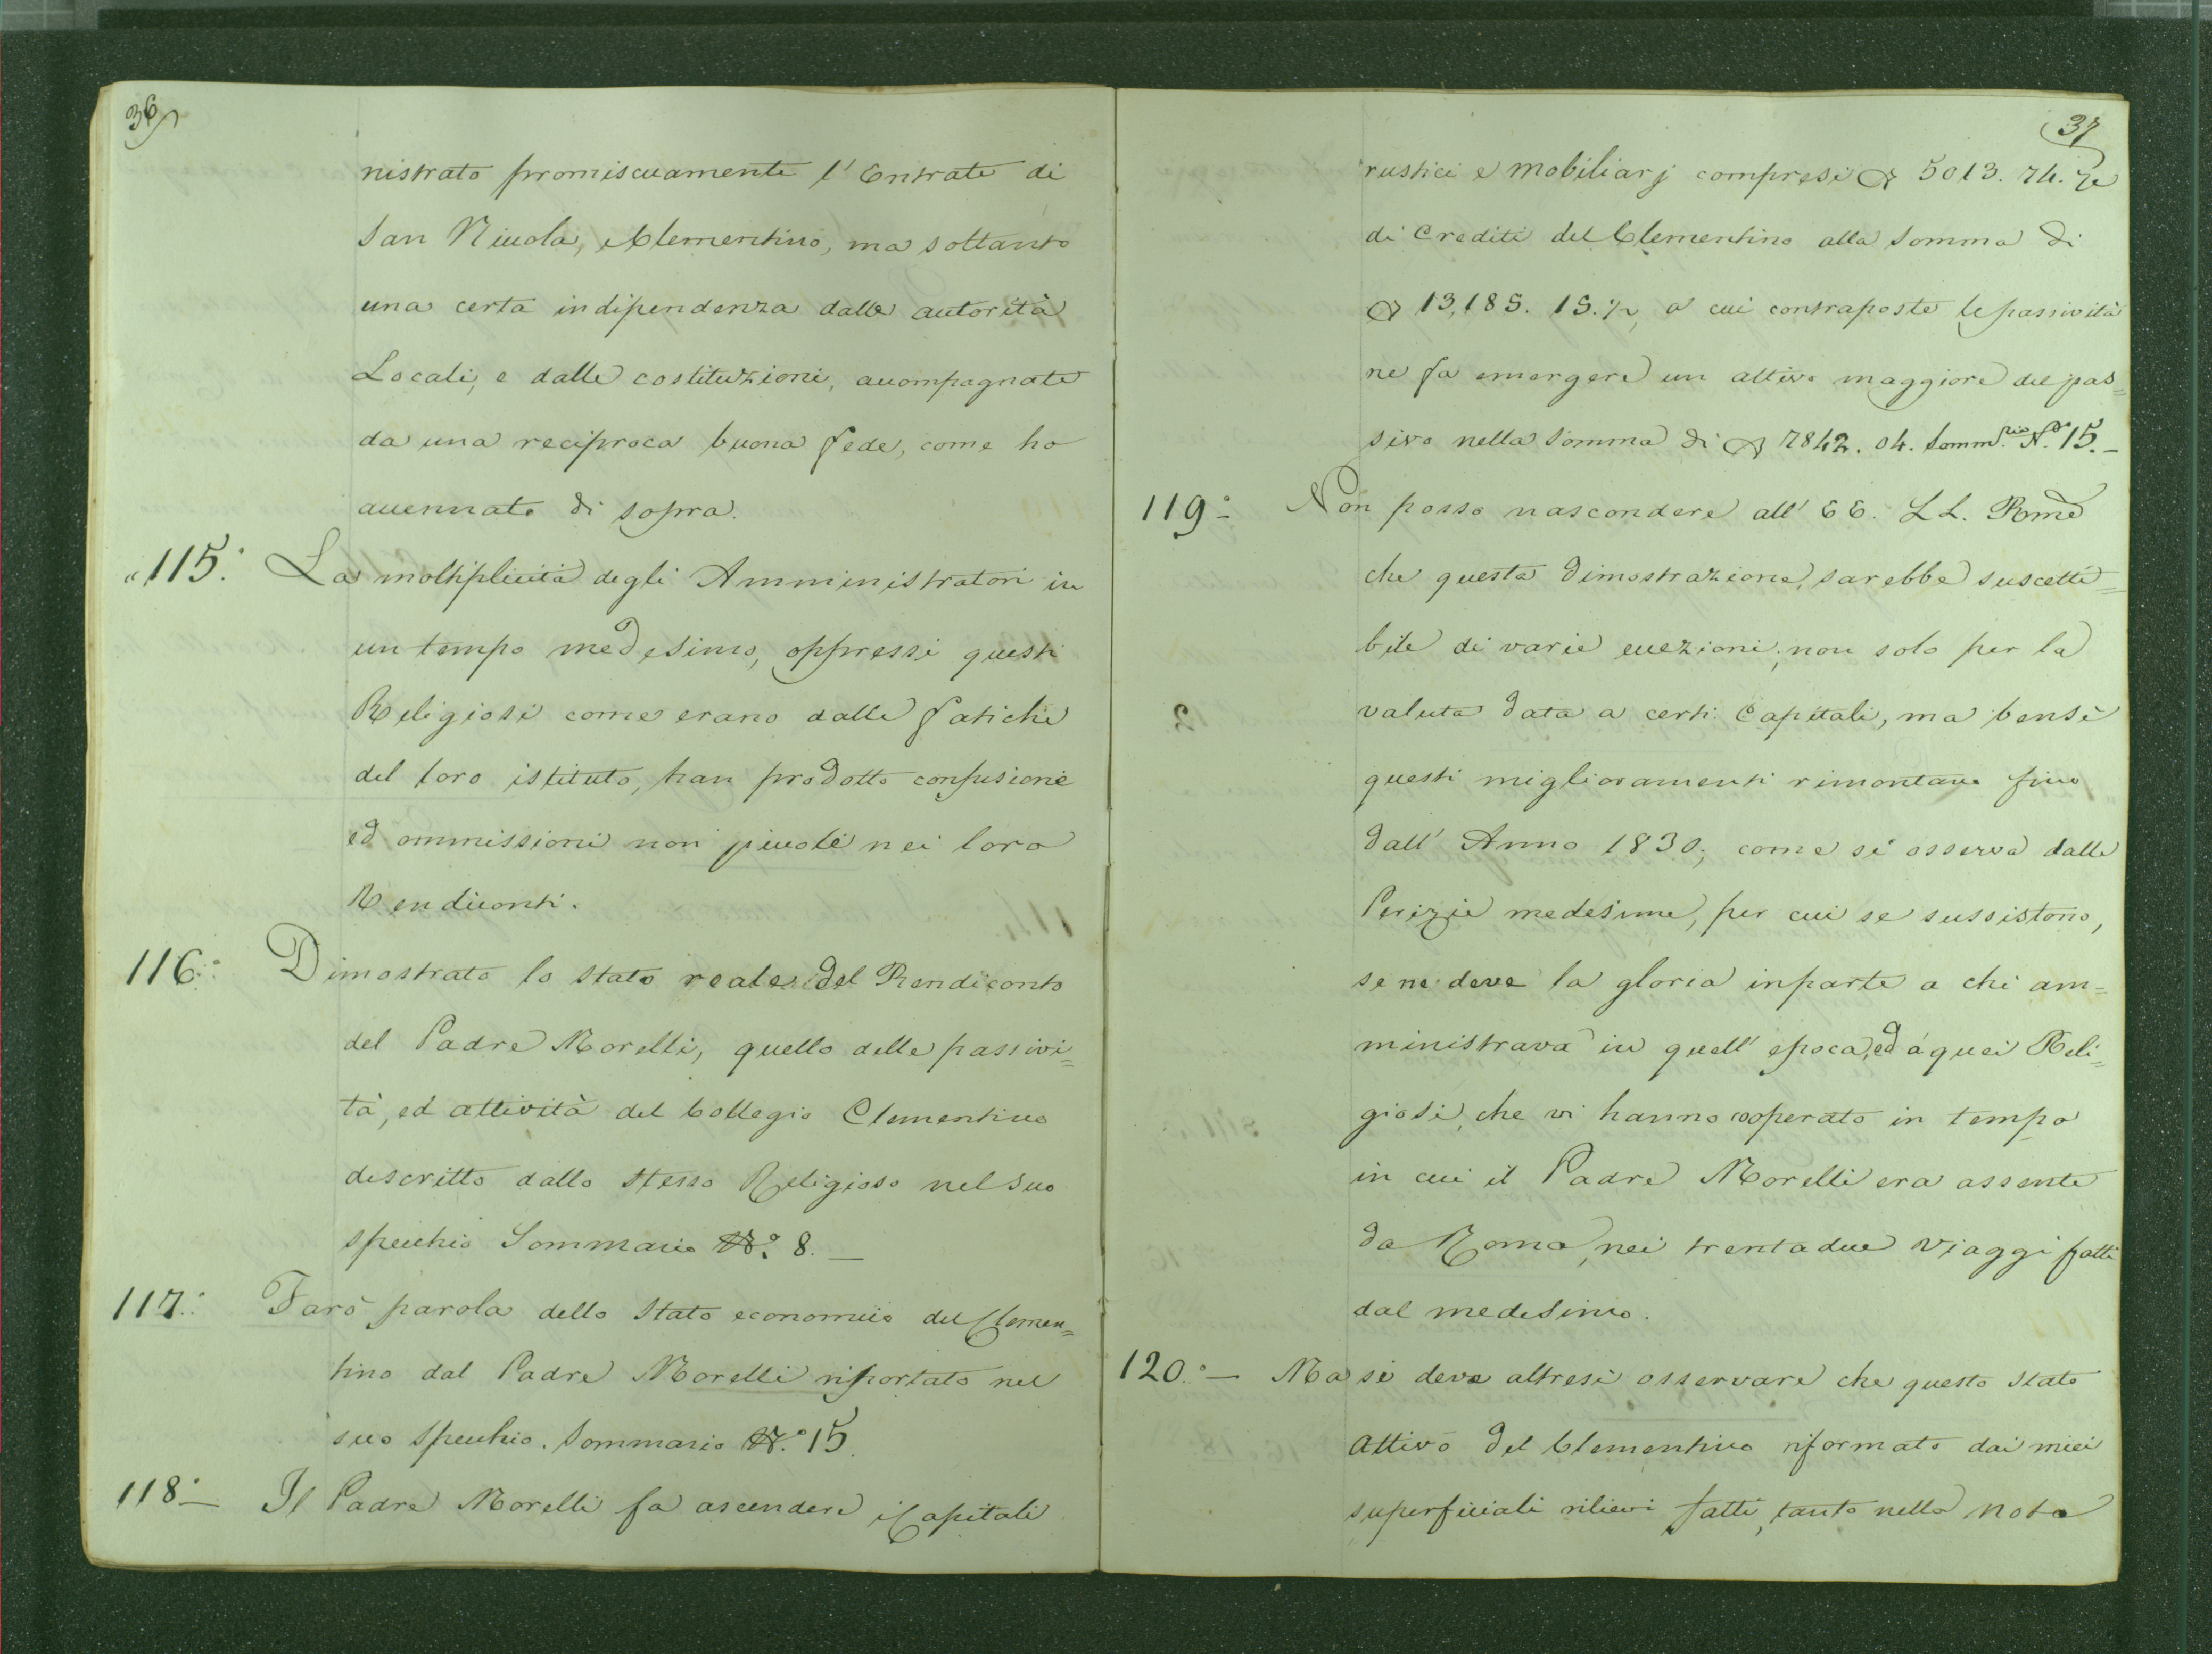 36
nistrato promiscuamente l'Entrate di
San Niccola, e Clementino, ma soltanto
una certa indipendenza dalle autorità
Locali, e dalle costituzioni, accompagnate
da una reciproca buona fede, come ho
accennato di sopra.
115.° La moltiplicità degli Amministratori in
un tempo medesimo, oppressi questi
Religiosi come erano dalle fatiche
del loro istituto, han prodotto confusione
ed ommissioni non piccole nei loro
Rendiconti.
116.° Dimostrato lo stato reale del Rendiconto
del Padre Morelli, quello delle passivi=
tà, ed attività del Collegio Clementino
descritto dallo stesso Religioso nel suo
specchio Sommario N.° 8. —
117.° Farò parola dello Stato economico del Clemen=
tino dal Padre Morelli riportato nel
suo Specchio. Sommario N.° 15.
118.° — Il Padre Morelli fa ascendere i Capitali
37
rustici e mobiliarj compresi 5013. 74.
di Crediti del Clementino alla somma di
13,185. 15. ½, a cui contraposte le passività
ne fa emergere un attivo maggiore del pas=
sivo nella somma di 7842. 04. Somm.rio N.° 15. —
119.° — Non posso nascondere all' EE. LL. Rme
che questa dimostrazione, sarebbe suscetti=
bile di varie eccezioni, non solo per la
valuta data a certi Capitali, ma bensì
questi miglioramenti rimontano fino
dall' Anno 1830, come si osserva dalle
Perizie medesime, per cui se sussistono,
se ne deve la gloria in parte a chi am=
ministrava in quell' epoca, ed a quei Reli=
giosi, che vi hanno cooperato in tempo
in cui il Padre Morelli era assente
da Roma, nei trentadue viaggi fatti
dal medesimo.
120.° — Ma si deve altresì osservare che questo stato
Attivo del Clementino riformato dai miei
superficiali rilievi fatti, tanto nella nota